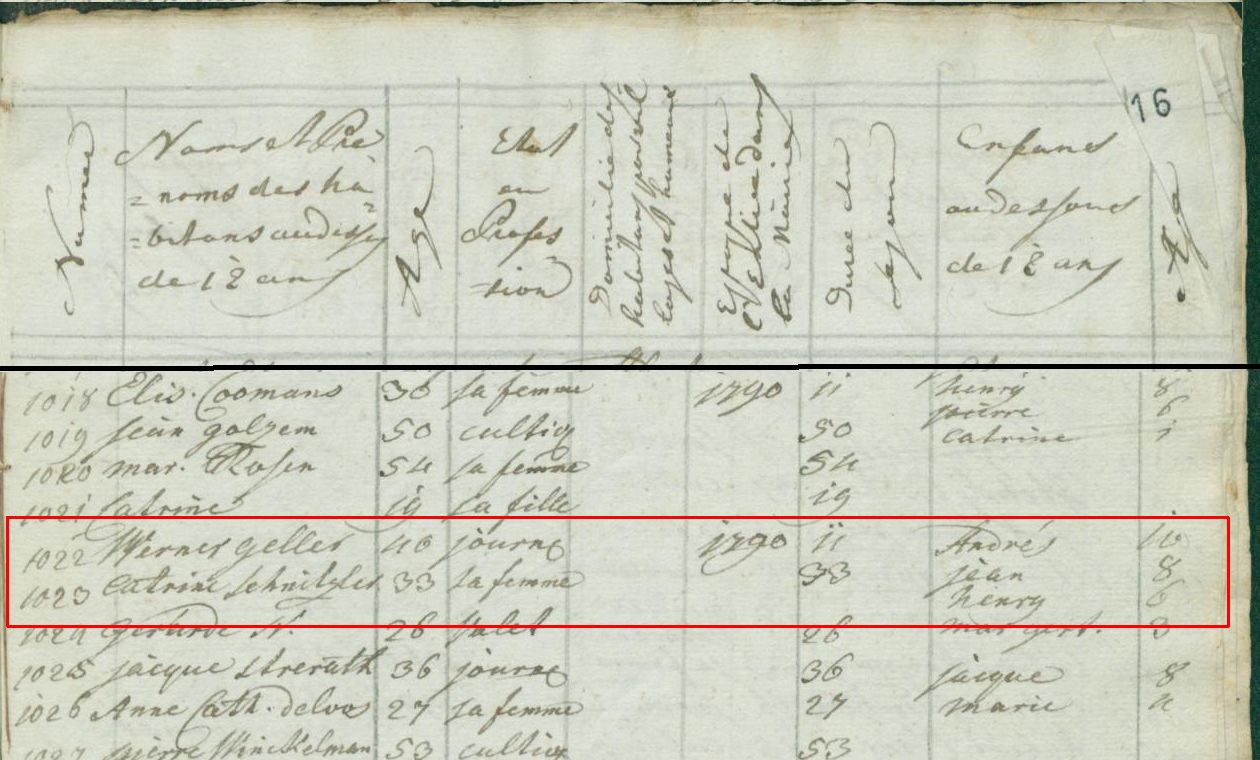 16
Numero
Noms et Pré
= noms des ha
= bitans audessus
de 12 ans
Age
Etat
ou
Profes
sion
Domicilie des
Epoque de
l'Entrée dans
la Mairie
Durée du
sejour
Enfans
audessous
de 12 ans
Age
1018 Elis. Coomans 36 sa femme 1790 11 henry 8
pierre 6
1019 jean golzem 50 cultiv 50 Catrine 1
1020 mar. Rosen 54 sa femme 54
1021 Catrine 19 sa fille 19
1022 Werner geller 40 journ 1790 11 Andrés 10
1023 Catrine schnitzler 33 sa femme 33 jean 8
henry 6
1024 gertrude N. 26 26 mar gert. 3
1025 jacque streruth 36 journ 36 jacque 8
1026 Anne Cath. delvos 27 sa femme 27 marie
1027 pierre Winckelman 53 cultiv 53